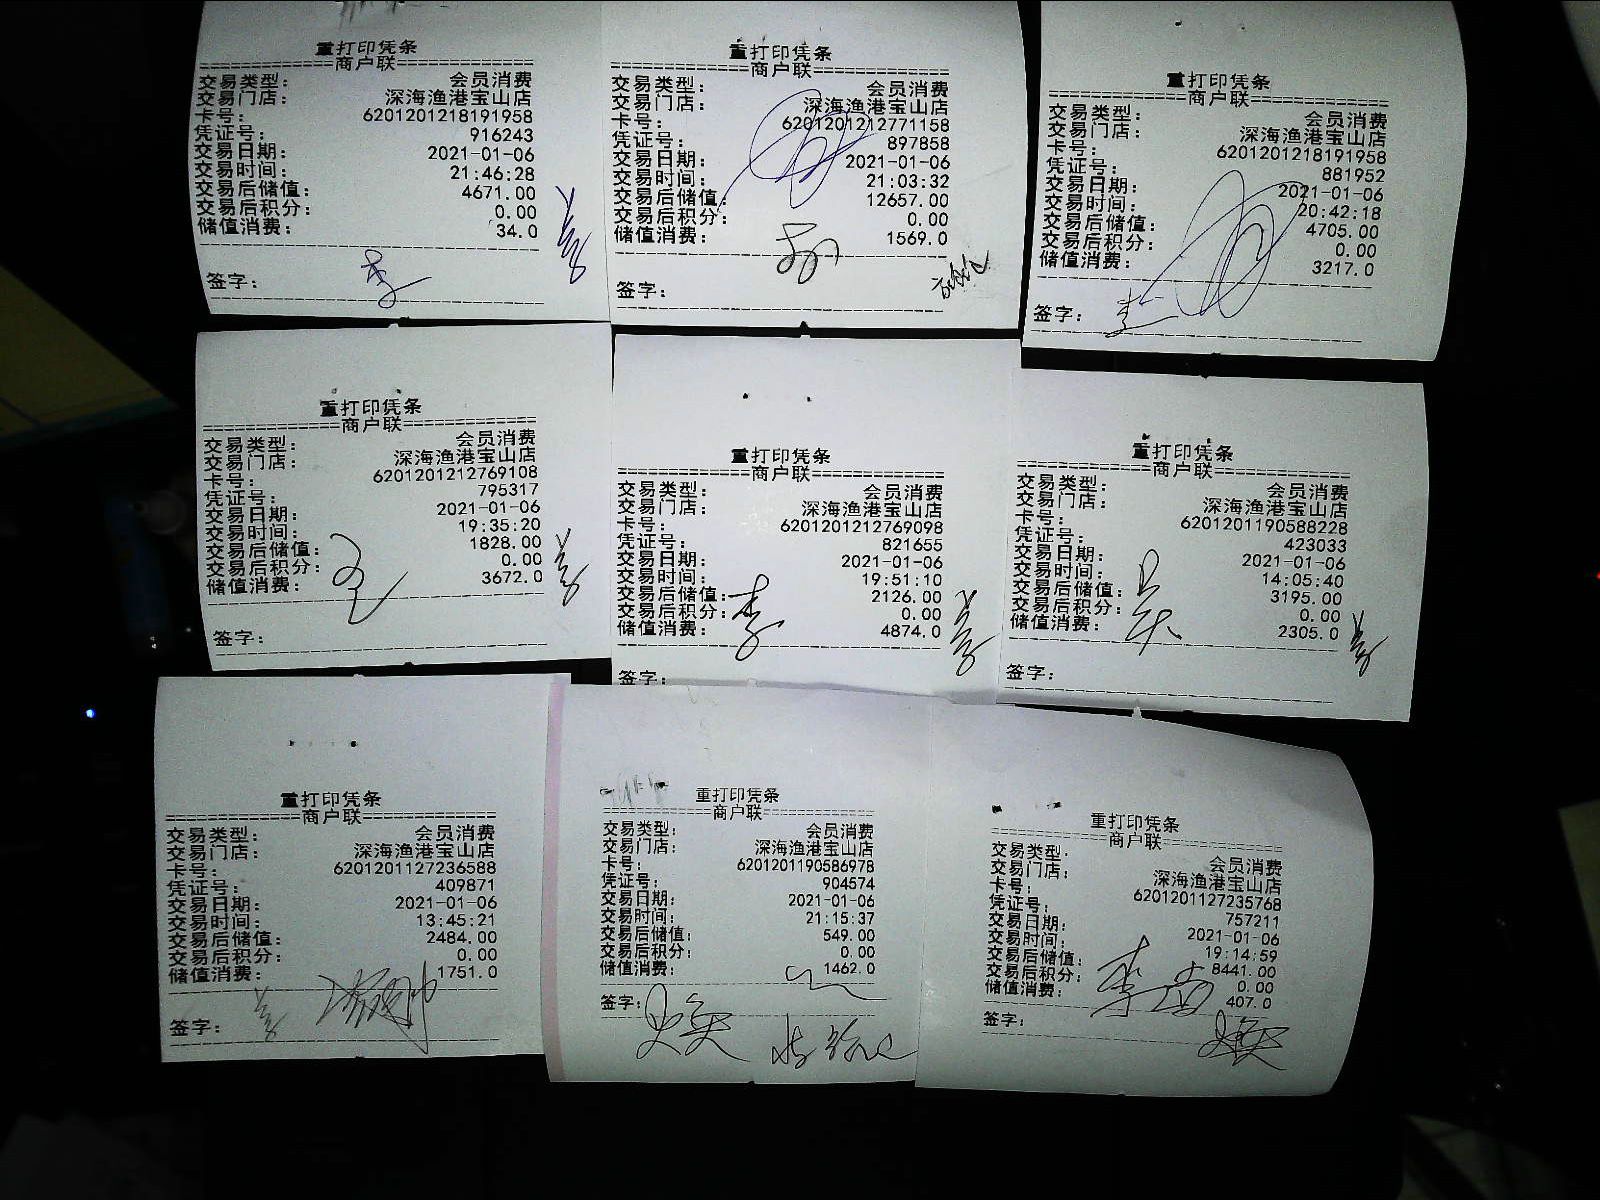 重打印凭条
==============商户联==============
交易类型: 会员消费
交易门店: 深海渔港宝山店
卡号: 6201201218191958
凭证号: 916243
交易日期: 2021-01-06
交易时间: 21:46:28
交易后储值: 4671.00
交易后积分: 0.00
储值消费: 34.0
签字:
重打印凭条
==============商户联==============
交易类型: 会员消费
交易门店: 深海渔港宝山店
卡号: 6201201212771158
凭证号: 897858
交易日期: 2021-01-06
交易时间: 21:03:32
交易后储值: 12657.00
交易后积分: 0.00
储值消费: 1569.0
签字:
重打印凭条
==============商户联==============
交易类型: 会员消费
交易门店: 深海渔港宝山店
卡号: 6201201218191958
凭证号: 881952
交易日期: 2021-01-06
交易时间: 20:42:18
交易后储值: 4705.00
交易后积分: 0.00
储值消费: 3217.0
签字:
重打印凭条
==============商户联==============
交易类型: 会员消费
交易门店: 深海渔港宝山店
卡号: 6201201212769108
凭证号: 795317
交易日期: 2021-01-06
交易时间: 19:35:20
交易后储值: 1828.00
交易后积分: 0.00
储值消费: 3672.0
签字:
重打印凭条
==============商户联==============
交易类型: 会员消费
交易门店: 深海渔港宝山店
卡号: 6201201212769098
凭证号: 821655
交易日期: 2021-01-06
交易时间: 19:51:10
交易后储值: 2126.00
交易后积分: 0.00
储值消费: 4874.0
李
签字:
重打印凭条
==============商户联==============
交易类型: 会员消费
交易门店: 深海渔港宝山店
卡号: 6201201190588228
凭证号: 423033
交易日期: 2021-01-06
交易时间: 14:05:40
交易后储值: 3195.00
交易后积分: 0.00
储值消费: 2305.0
吴
签字:
重打印凭条
==============商户联==============
交易类型: 会员消费
交易门店: 深海渔港宝山店
卡号: 6201201127236588
凭证号: 409871
交易日期: 2021-01-06
交易时间: 13:45:21
交易后储值: 2484.00
交易后积分: 0.00
储值消费: 1751.0
签字:
重打印凭条
==============商户联==============
交易类型: 会员消费
交易门店: 深海渔港宝山店
卡号: 6201201190586978
凭证号: 904574
交易日期: 2021-01-06
交易时间: 21:15:37
交易后储值: 549.00
交易后积分: 0.00
储值消费: 1462.0
签字:
重打印凭条
==============商户联==============
交易类型: 会员消费
交易门店: 深海渔港宝山店
卡号: 6201201127235768
凭证号: 757211
交易日期: 2021-01-06
交易时间: 19:14:59
交易后储值: 8441.00
交易后积分: 0.00
储值消费: 407.0
签字: